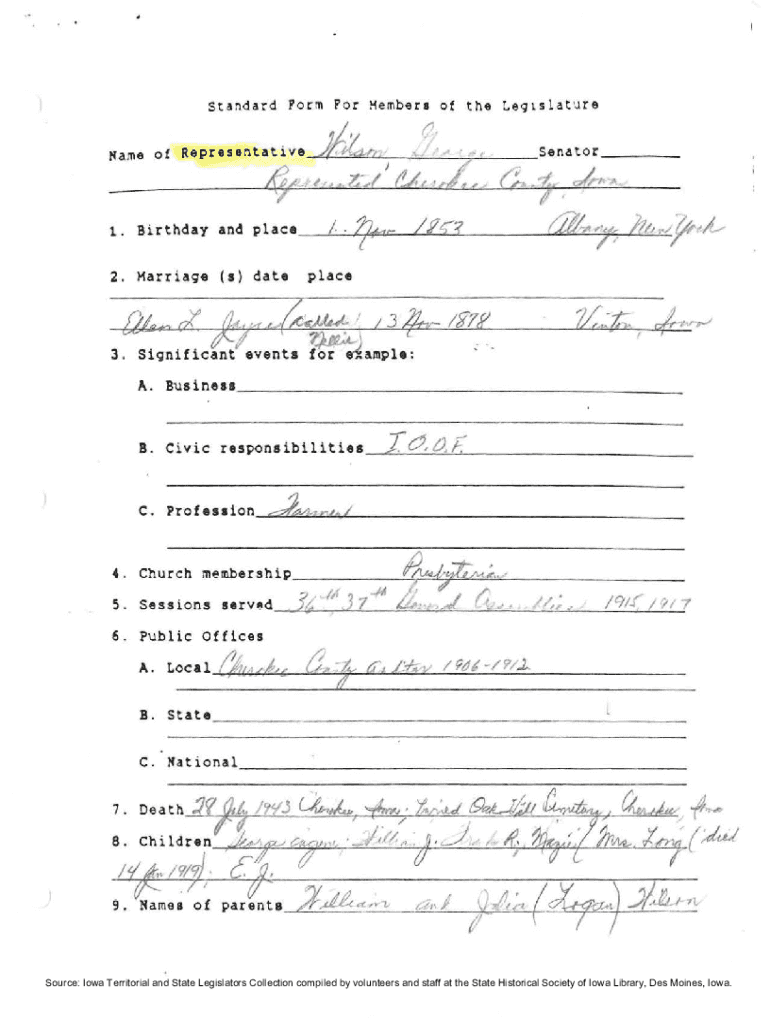 Standard Form For Members of the Legislature
Name of Representative Wilson, George Senator
Represented Cherokee County, Iowa
1. Birthday and place 1. Nov 1853 Albany, New York
2. Marriage (s) date place
L. Joyce (called 13 Nov 1878 Vinton, Iowa
Nellie)
3. Significant events for example:
A. Business
B. Civic responsibilities I.O.O.F.
C. Profession Farmer
4. Church membership Presbyterian
5. Sessions served 36th, 37th General Assemblies 1915, 1917
6. Public Offices
A. Local Cherokee County auditor 1906-1912
B. State
C. National
7. Death 28 July 1943 Cherokee, Iowa; buried Oak Hill Cemetery, Cherokee, Iowa
8. Children George Eugene; William J. Frank R., Mazie (Mrs. Long (died
14 Jan 1919); E. J.
9. Names of parents William and Julia (Logan) Wilson
Source: Iowa Territorial and State Legislators Collection compiled by volunteers and staff at the State Historical Society of Iowa Library, Des Moines, Iowa.